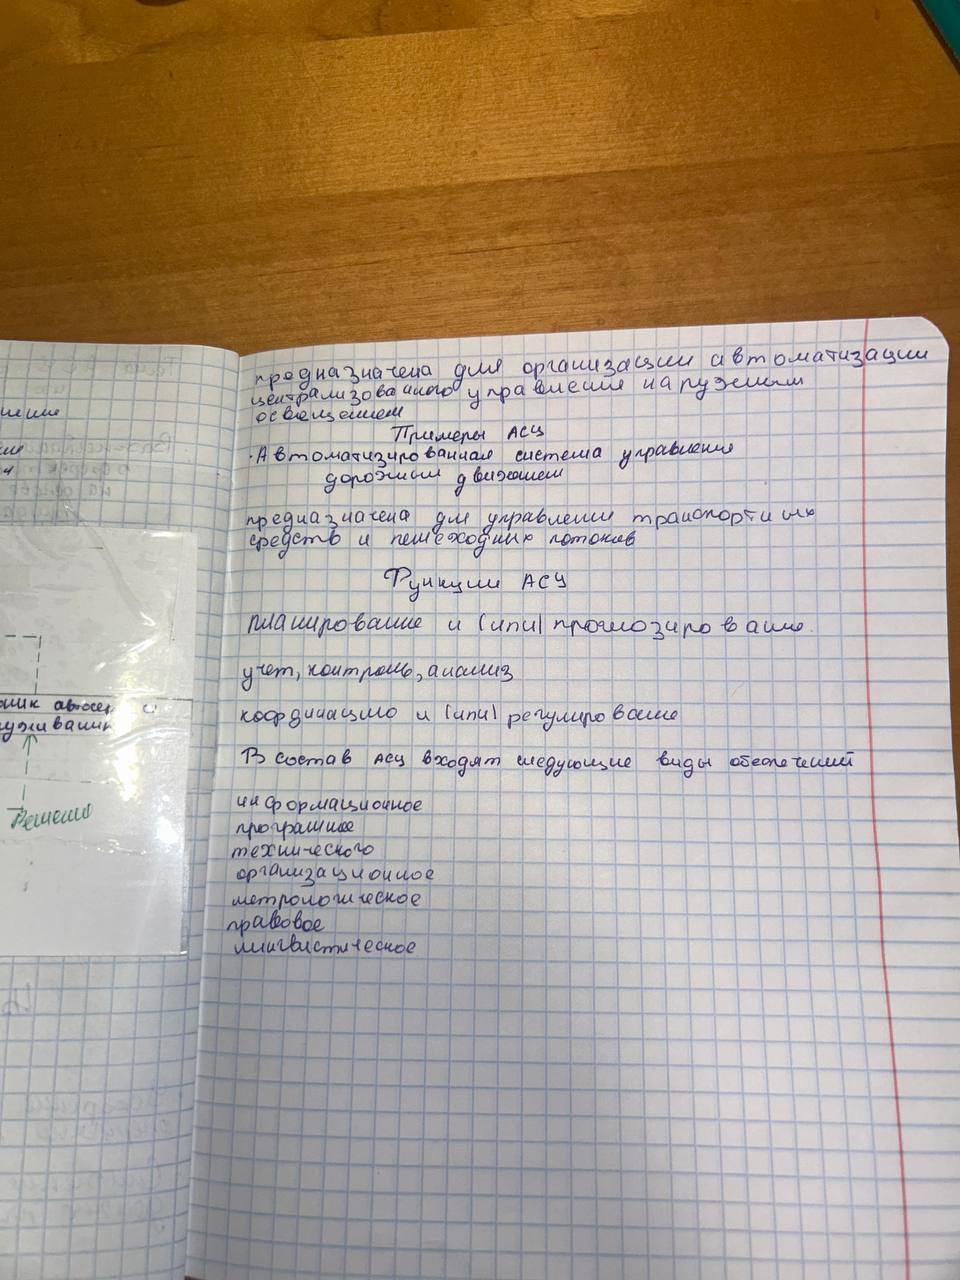 предназначена для организации автоматизации
централизованного управления наружным
освещением
Примеры АСУ
·Автоматизированная система управления
дорожным движением
предназначена для управления транспортных
средств и пешеходных потоков
Функции АСУ
планирование и (или) прогнозирование.
учет, контроль, анализ
координацию и (или) регулирование
В состав АСУ входят следующие виды обеспечений
информационное
програмное
технического
организационное
метрологическое
правовое
лингвистическое
Решение